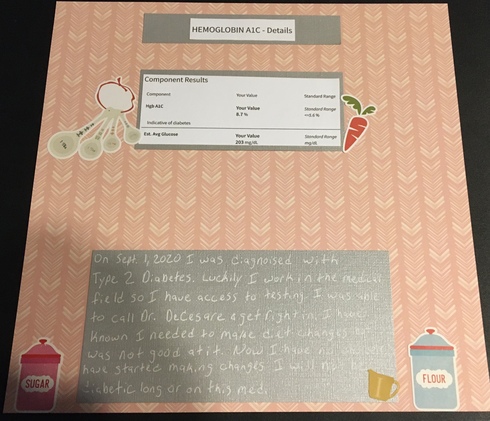 HEMOGLOBIN A1C - Details
Component Results
Component Your Value Standard Range
Hgb A1C Your Value Standard Range
8.7 % <=5.6 %
Indicative of diabetes
Est. Avg Glucose Your Value Standard Range
203 mg/dL mg/dL
On Sept. 1, 2020 I was diagnoised with
Type 2 Diabetes. Luckily I work in the medical
field so I have access to testing. I was able
to call Dr. DeCesare & get right in. I have
known I needed to make diet changes but
was not good at it. Now I have no
have started making changes I will not be
diabetic long or on this med.
SUGAR
FLOUR